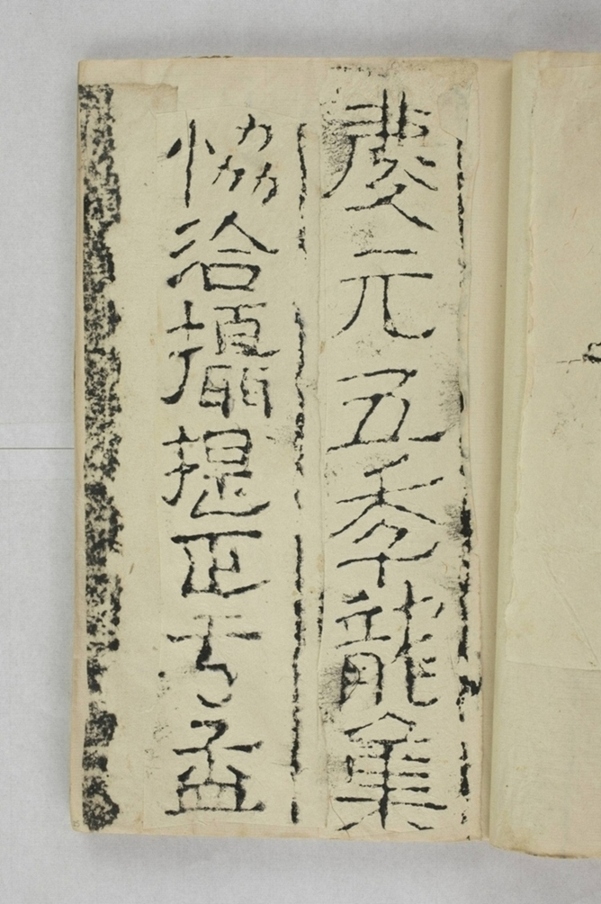 慶元五秊龍集
協洽攝提正于孟